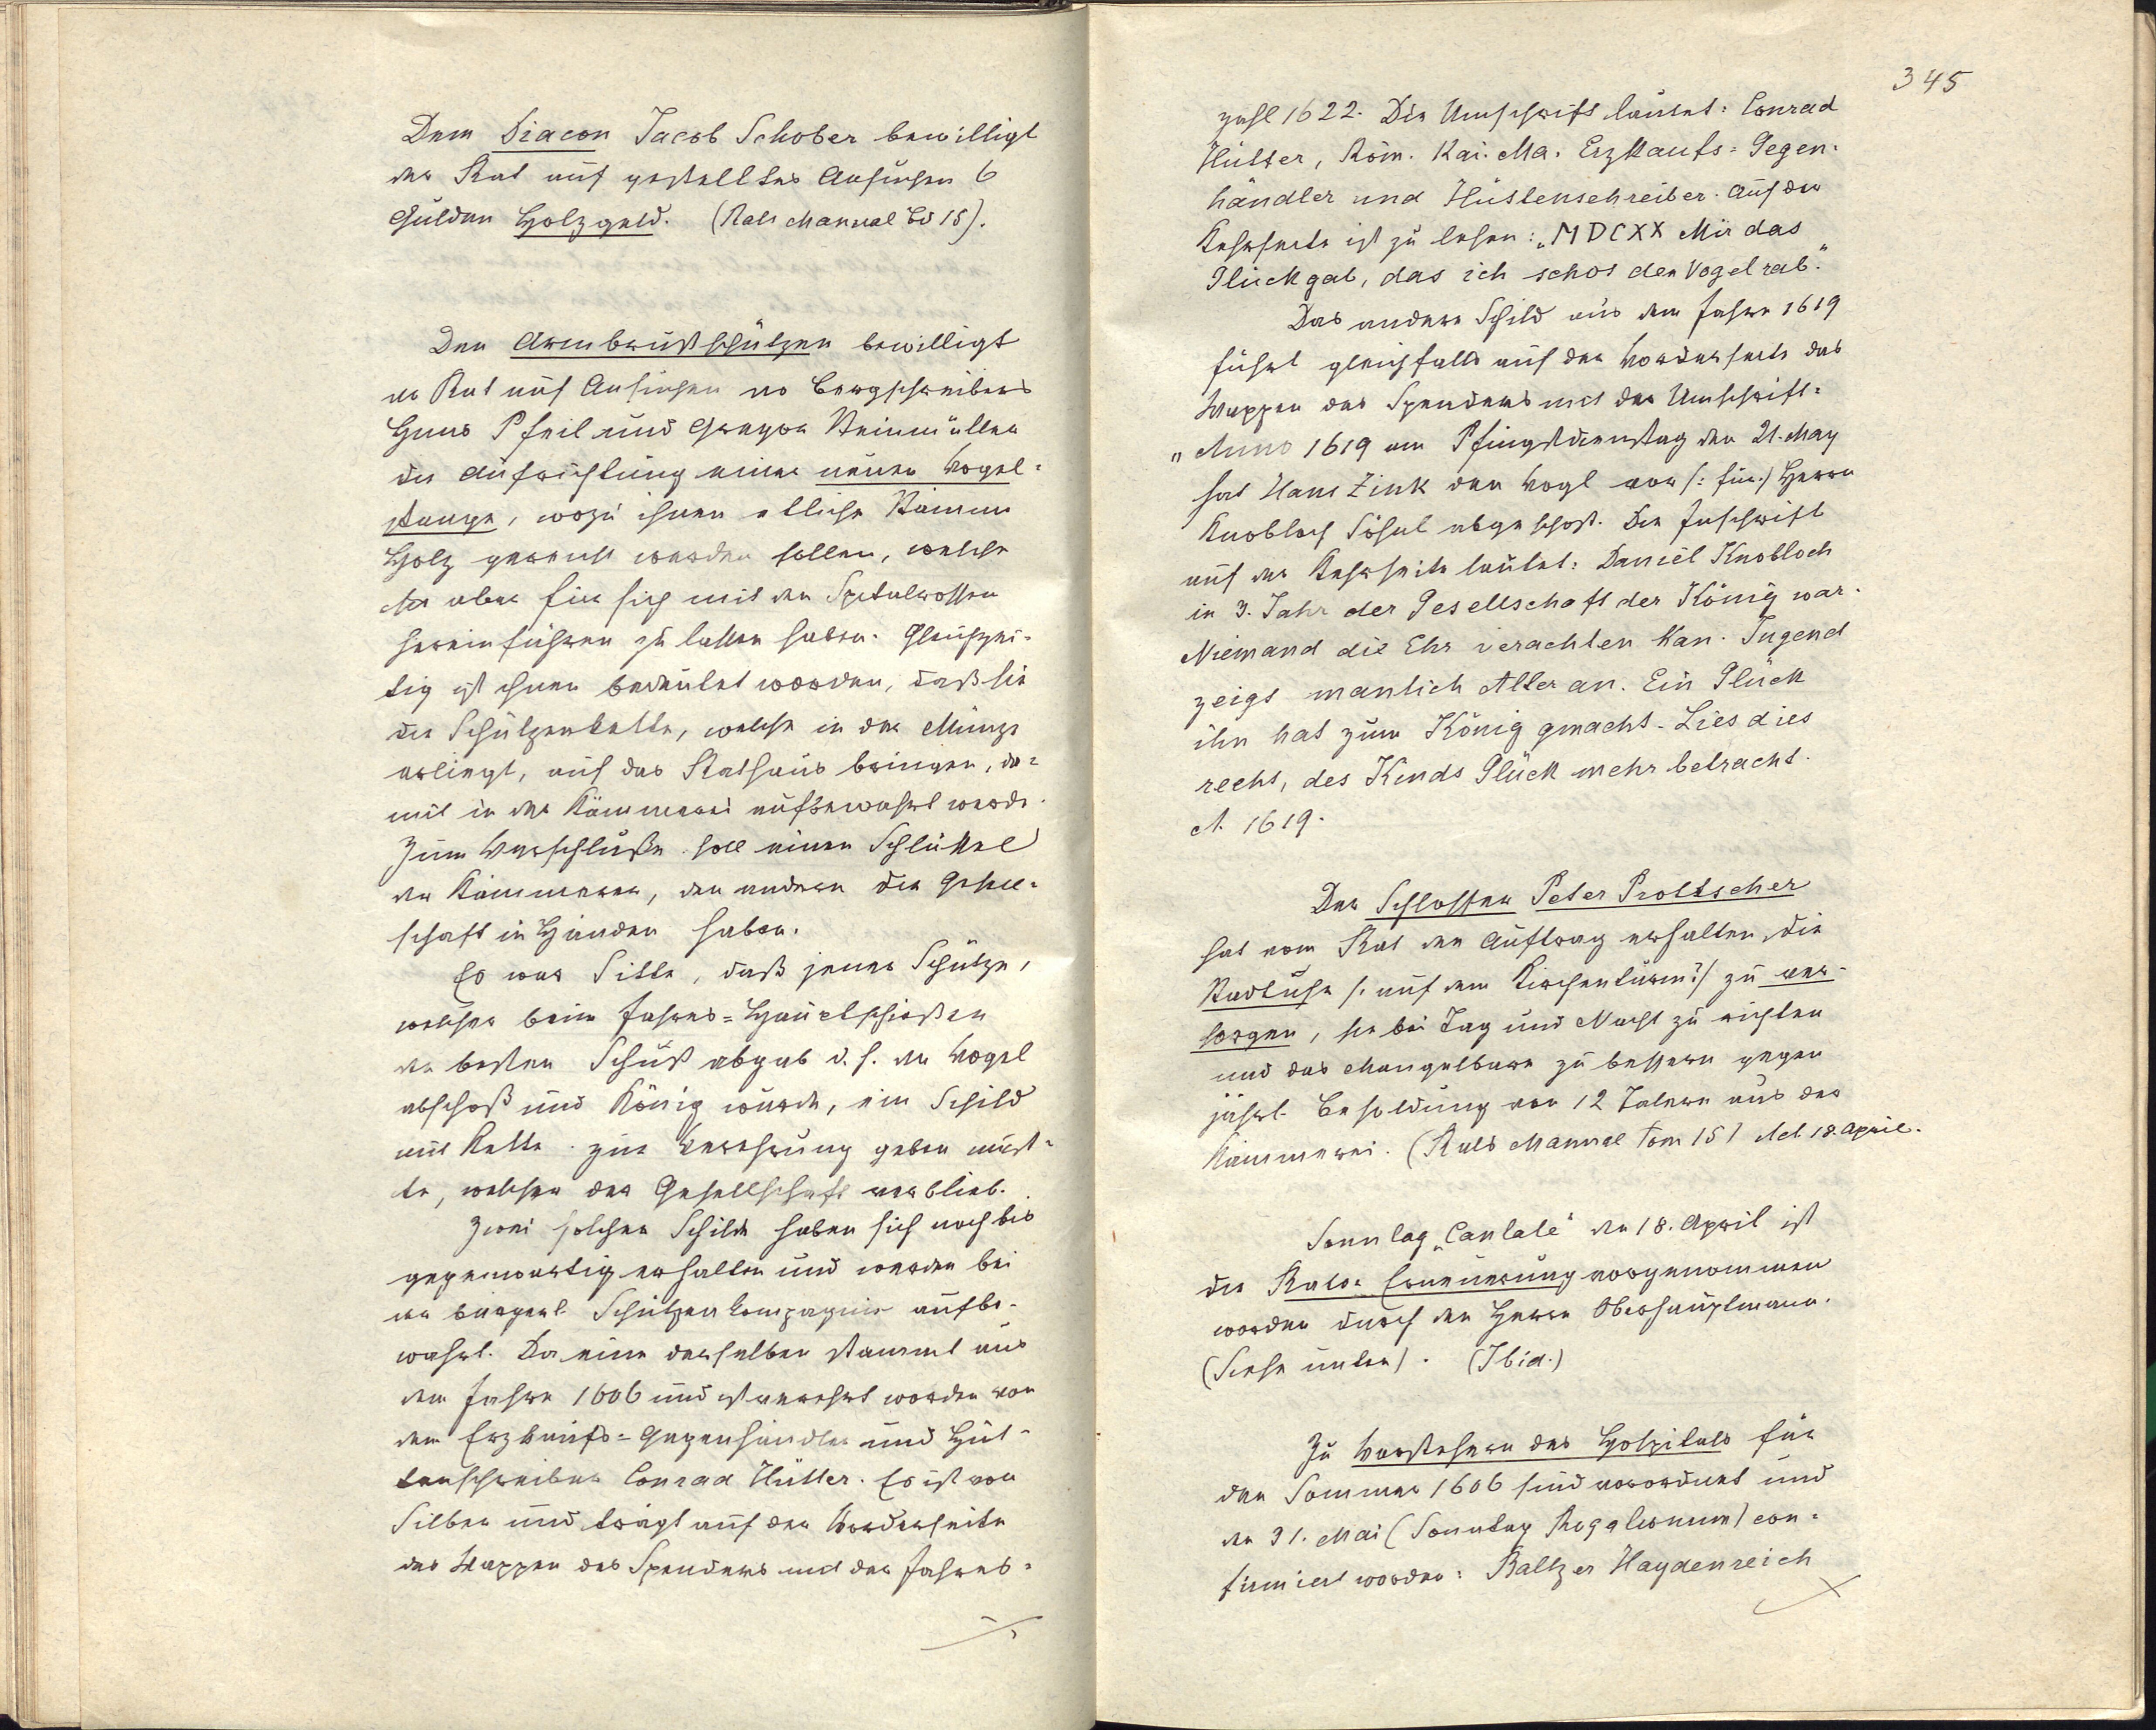 Dem Diacon Jacob Schober bewilligt
der Rat auf gestelltes Ansuchen 6
Gulden Holzgeld. (Rats Manual Bd 15).
Den Armbrustschützen bewilligt
der Rat auf Ansuchen des Bergschreibers
Hans Pfeil und Gregor Steinmüller
die Aufrichtung einer neuen Vogel-
stange, wozu ihnen etliche Stämme
Holz gereicht werden sollen, welche
sie aber für sich mit den Spitalrossen
hereinführen zu lassen haben. Gleichzei-
tig ist ihnen bedeutet worden, daß sie
die Schützenkette, welche in der Münze
erliegt, auf das Rathaus bringen, da-
mit in der Kämmerei aufbewahrt werde.
Zum Verschluße soll einen Schlüssel
der Kämmerer, den andern die Gesell-
schaft in Händen haben.
Es war Sitte, daß jener Schütze,
welcher beim Jahres-Hauptschießen
den besten Schuß abgab d. h. den Vogel
abschoß und König wurde, ein Schild
mit Kette zur Verehrung geben muß-
te, welcher der Gesellschaft verblieb.
Zwei solcher Schilde haben sich noch bis
gegenwärtig erhalten und werden bei
der bürgerl. Schützenkompagnie aufbe-
wahrt. Der eine derselben stammt aus
dem Jahre 1606 und ist verehrt worden von
dem Erzkaufs-Gegenhändler und Hüt-
tenschreiber Conrad Hütter. Es ist von
Silber und trägt auf der Vorderseite
das Wappen des Spenders und der Jahres-
345
zahl 1622. Die Umschrift lautet: Conrad
Hütter, Röm. Kai. Ma. Erzkaufs-Gegen-
händler und Hüttenschreiber. Auf der
Kehrseite ist zu lesen: „MDCXX Mir das
Glück gab, das ich schos den Vogel rab."
Das andere Schild aus dem Jahre 1619
führt gleichfalls auf der Vorderseite das
Wappen des Spenders mit der Umschrift:
„Anno 1619 am Pfingstdienstag den 21. May
hat Hans Zink den Vogl vor /: für:/ Herrn
Knobloch Söhnl abgeschoß. Die Inschrift
auf der Kehrseite lautet: Daniel Knobloch
in 3. Jahr der Gesellschaft der König war.
Niemand die Ehr verachten kan. Jugend
zeigs manlich Alter an. Ein Glück
ihn hat zum König gmacht. Lies dies
recht, des Kinds Glück mehr betracht.
A. 1619.
Der Schlosser Peter Proltscher
hat vom Rat den Auftrag erhalten, die
Stadtuhr /: auf dem Kirchenturm?/ zu ver-
sorgen, sie bei Tag und Nacht zu richten
und das Mangelbare zu bessern gegen
jährl. Besoldung von 12 Talern aus der
Kämmerei. (Rats Manual Tom 15) Act. 18. April.
Sonntag „Cantate" den 18. April ist
die Rats-Erneuerung vorgenommen
worden durch den Herrn Oberhauptmann.
(Siehe unten). (Ibid.)
Zu Vorstehern des Hospitals für
den Sommer 1606 sind verordnet und
den 31. Mai (Sonntag Rogationum) con-
firmiert worden: Baltzer Haydenreich